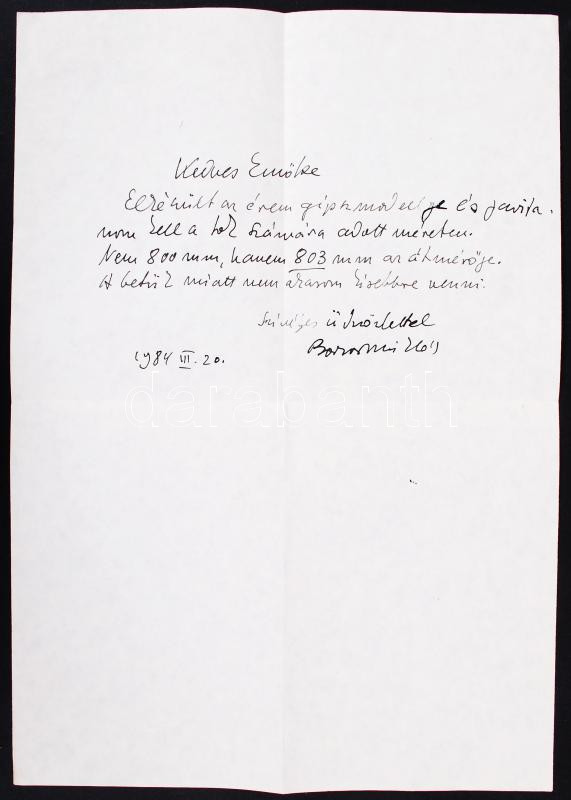 Kedves Emőke
Elkészült az érem gipszmodellje és javíta-
nom kell a tok számára adott méreten.
Nem 800 mm, hanem 803 mm az átmérője.
A betűk miatt nem akarom kisebbre venni.
Szívélyes üdvözlettel
Borsos Miklós
1984 III. 20.
darabanth